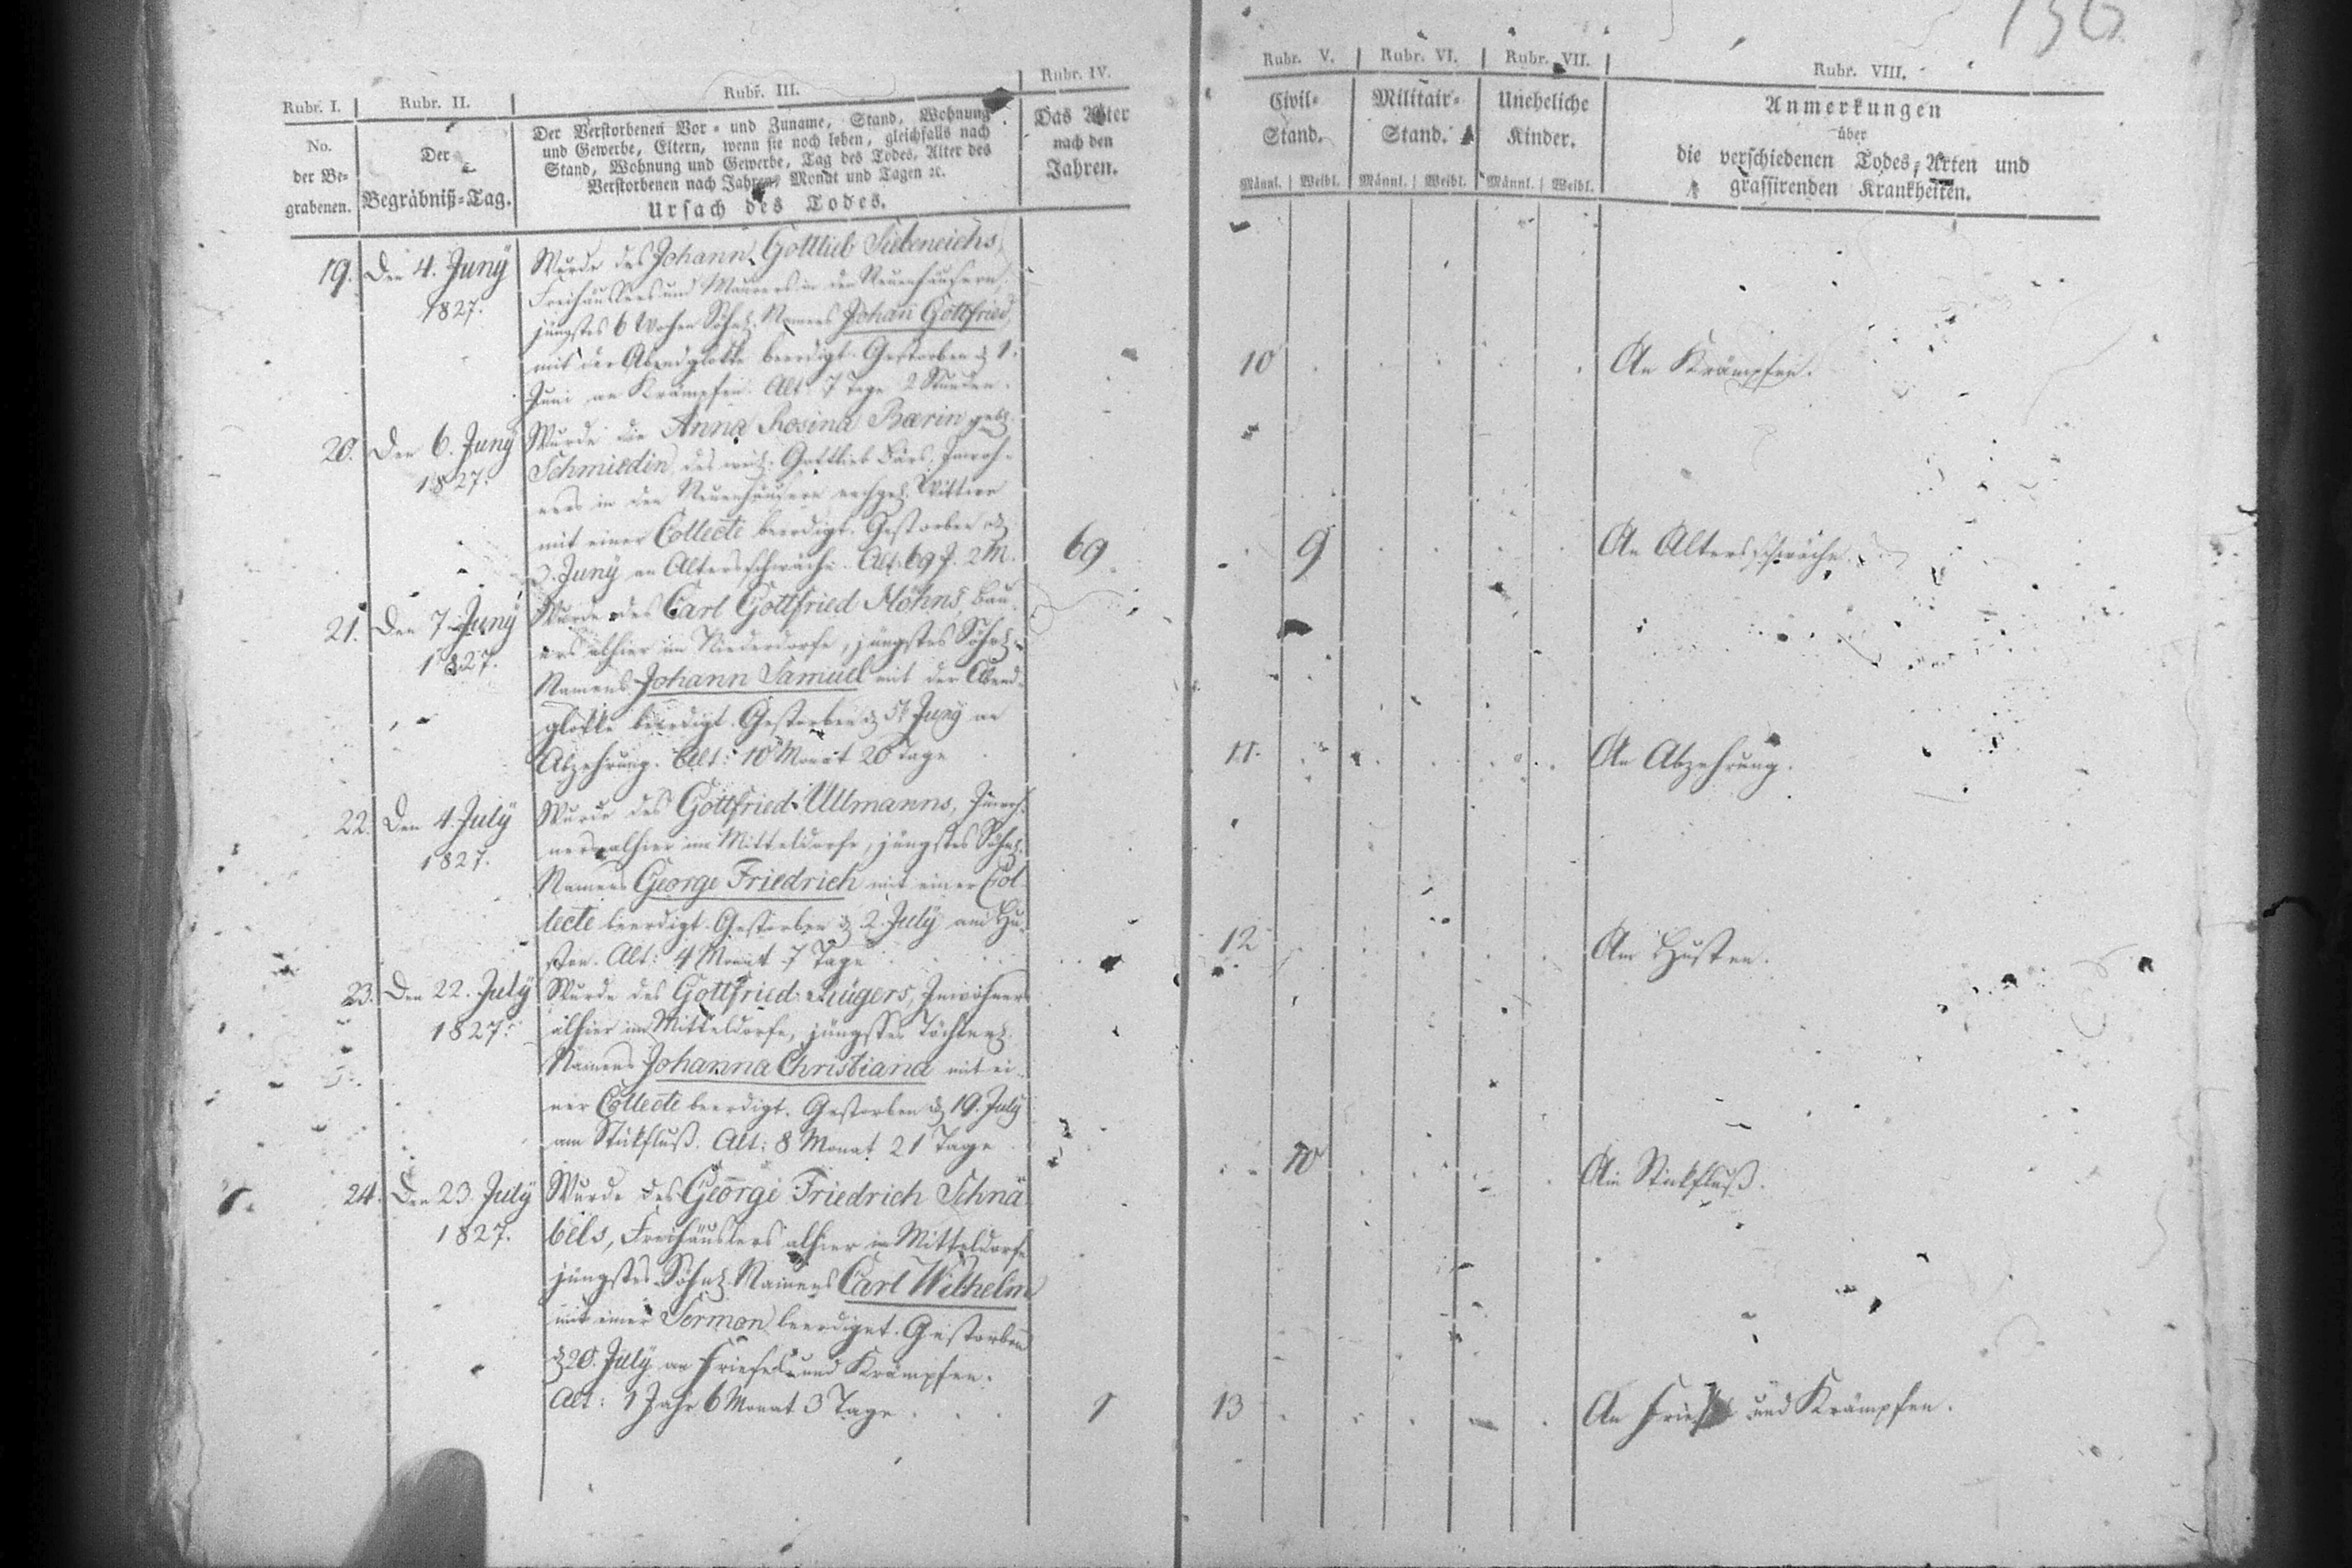 136
Rubr. I.
Rubr. II.
Rubr. III.
Rubr. IV.
Rubr. V.
Rubr. VI.
Rubr. VII.
Rubr. VIII.
No.
der Be-
grabenen.
Der
Begräbniß-Tag.
Der Verstorbenen Vor- und Zuname, Stand, Wohnung
und Gewerbe, Eltern, wenn sie noch leben, gleichfalls nach
Stand, Wohnung und Gewerbe, Tag des Todes, Alter des
Verstorbenen nach Jahren, Monat und Tagen ꝛc.
Ursach des Todes.
Das Alter
nach den
Jahren.
Civil-
Stand.
Männl. Weibl.
Militair-
Stand.
Männl. Weibl.
Uneheliche
Kinder.
Männl. Weibl.
Anmerkungen
über
die verschiedenen Todes-Arten und
grassirenden Krankheiten.
19.
Den 4. Juny
1827.
Wurde des Johann Gottlieb Siebeneichs,
Freihäuslers und Maurers in den Neuenhäusern,
jüngstes 6 Wochen Söhnl. Namens Johan̄ Gottfried,
mit der Abendglokke beerdigt. Gestorben d. 1.
Juni an Krämpfen. Alt 7 Tage 2 Stunden.
10
An Krämpfen.
20.
Den 6. Juny
1827.
Wurde die Anna Rosina Bærin geb.
Schmiedin, des weil. Gottlieb Bärs, Inwoh-
ners in den Neuenhäusern nachgel. Wittwe
mit einer Collecte beerdigt. Gestorben d.
3. Juny an Altersschwäche. Alt: 69 J. 2 M.
69
9
An Altersschwäche.
21.
Den 7. Juny
1827.
Wurde des Carl Gottfried Höhns, Bau-
ers alhier im Niederdorfe, jüngstes Söhnl.
Namens Johann Samuel mit der Abend-
glokke beerdigt. Gestorben d. 5t Juny an
Abzehrung. Alt: 10 Monat 20 Tage
11.
An Abzehrung.
22.
Den 4. July
1827.
Wurde des Gottfried Ullmanns, Inwoh-
ners alhier im Mitteldorfe, jüngstes Söhnl.
Namens George Friedrich mit einer Col-
lecte beerdigt. Gestorben d. 2. July am Hu-
sten. Alt: 4 Monat 7 Tage
12
Am Husten.
23.
Den 22. July
1827.
Wurde des Gottfried Rügers, Inwohners
alhier im Mitteldorfe, jüngstes Töchterl.
Namens Johanna Christiana mit ei-
ner Collecte beerdigt. Gestorben d. 19. July
am Stikfluß. Alt: 8 Monat 21 Tage
10
Am Stikfluß.
24.
Den 23. July
1827.
Wurde des George Friedrich Schnä-
bels, Freihäuslers alhier im Mitteldorfe
jüngstes Söhnl. Namens Carl Wilhelm
mit einer Sermon beerdiget. Gestorben
d. 20. July an Friesel und Krämpfen.
Alt: 1 Jahr 6 Monat 3 Tage
1
13
An Friesel und Krämpfen.